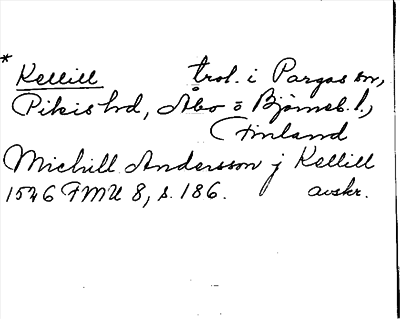 * Kellill trol. i Pargas sn,
Pikis hd, Åbo o Björneb. l.,
Finland
Michill Andersson j Kellill
1546 FMU 8, s. 186. avskr.